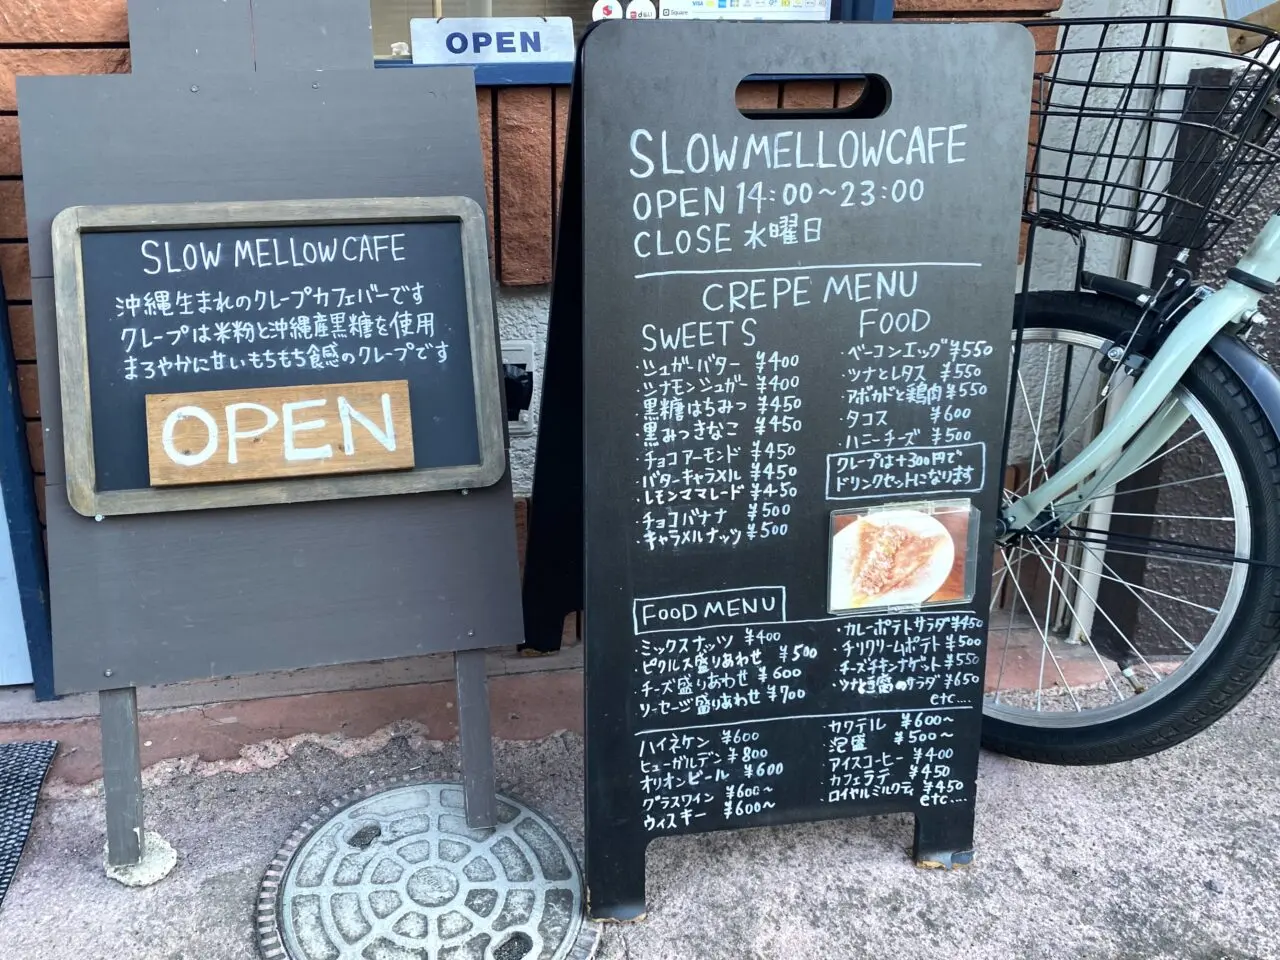 OPEN
VISA
Square
SLOW MELLOW CAFE
沖縄生まれのクレープカフェバーです
クレープは米粉と沖縄産黒糖を使用
まろやかに甘いもちもち食感のクレープです
OPEN
SLOWMELLOWCAFE
OPEN 14:00～23:00
CLOSE 水曜日
CREPE MENU
SWEETS
・シュガーバター ¥400
・シナモンシュガー ¥400
・黒糖はちみつ ¥450
・黒みつきなこ ¥450
・チョコアーモンド ¥450
・バターキャラメル ¥450
・レモンママレード ¥450
・チョコバナナ ¥500
・キャラメルナッツ ¥500
FOOD
・ベーコンエッグ ¥550
・ツナとレタス ¥550
・アボカドと鶏肉 ¥550
・タコス ¥600
・ハニーチーズ ¥500
クレープは+300円で
ドリンクセットになります
FOOD MENU
ミックスナッツ ¥400
ピクルス盛りあわせ ¥500
チーズ盛りあわせ ¥600
ソーセージ盛りあわせ ¥700
・カレーポテトサラダ ¥450
・チリクリームポテト ¥500
・チーズチキンナゲット ¥550
・ツナと豆腐のサラダ ¥650
etc....
ハイネケン ¥600
ヒューガルデン ¥800
オリオンビール ¥600
グラスワイン ¥600～
ウィスキー ¥600～
・カクテル ¥600～
・泡盛 ¥500～
・アイスコーヒー ¥400
・カフェラテ ¥450
・ロイヤルミルクティ ¥450
etc....